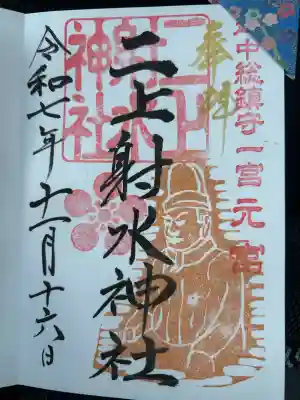 奉拝
越中総鎮守一宮元宮
二上射水神社
二上
射水
神社
令和七年十一月十六日